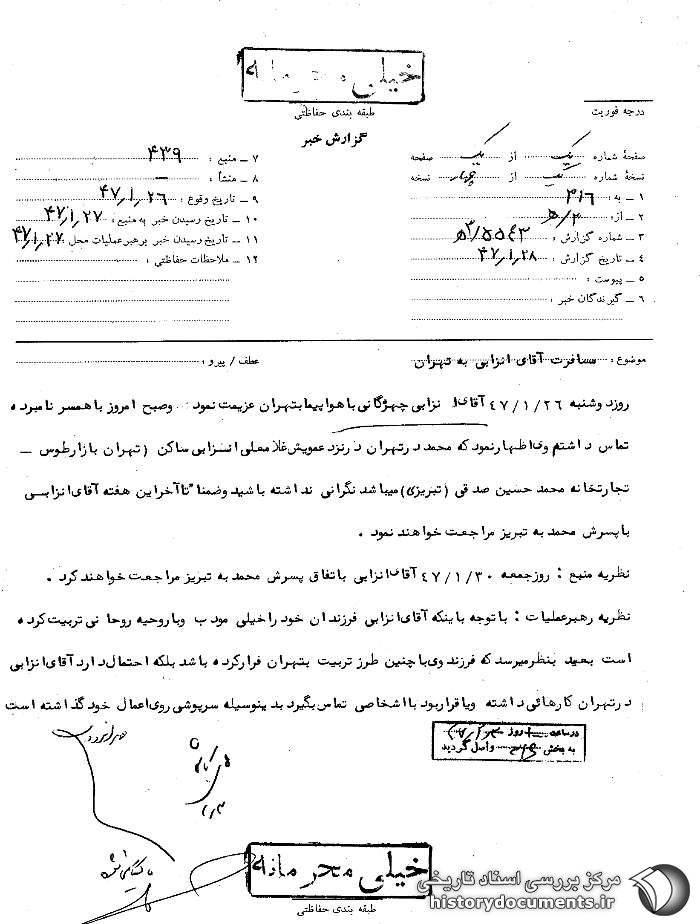 خیلی محرمانه
طبقه بندی حفاظتی
درجه فوریت
گزارش خبر
صفحهٔ شماره یک از یک صفحه
نسخهٔ شماره یک از چهار نسخه
۱ ــ به : ۳۱۶
۲ ــ از: ۵/ﻫ۳
۳ ــ شماره گزارش : ۵۵۴۳/ﻫ۳
۴ ــ تاریخ گزارش : ۴۷/۱/۲۸
۵ ــ پیوست :
۶ ــ گیرندگان خبر :
۷ ــ منبع : ۴۳۹
۸ ــ منشأ : ــ
۹ ــ تاریخ وقوع : ۴۷/۱/۲۶
۱۰ ــ تاریخ رسیدن خبر به منبع : ۴۷/۱/۲۷
۱۱ ــ تاریخ رسیدن خبر برهبر عملیات محل : ۴۷/۱/۲۷
۱۲ ــ ملاحظات حفاظتی :
موضوع : مسافرت آقای انزابی به تهران
عطف / پیرو :
روزد وشنبه ۴۷/۱/۲۶ آقای انزابی چهرگانی باهواپیما بتهران عزیمت نمود . وصبح امروز با همسر نامبرده
تماس داشتم وی اظهارنمود که محمد درتهران درنزد عمویش غلامعلی انزابی ساکن (تهران بازارطوس ــ
تجارتخانه محمد حسین صدقی (تبریزی) میباشد نگرانی نداشته باشید وضمنا" تاآخراین هفته آقای انزابی
با پسرش محمد به تبریز مراجعت خواهند نمود .
نظریه منبع : روزجمعه ۴۷/۱/۳۰ آقای انزابی باتفاق پسرش محمد به تبریز مراجعت خواهند کرد .
نظریه رهبرعملیات : باتوجه باینکه آقای انزابی فرزندان خود راخیلی مودب وباروحیه روحانی تربیت کرده
است بعید بنظرمیرسد که فرزند وی باچنین طرز تربیت بتهران فرارکرده باشد بلکه احتمال دارد آقای انزابی
درتهران کارهائی داشته ویا قرار بود با اشخاصی تماس بگیرد بدینوسیله سرپوشی روی اعمال خود گذاشته است
در ساعت روز
به بخش واصل گردید
خیلی محرمانه
طبقه بندی حفاظتی
مرکز بررسی اسناد تاریخی
historydocuments.ir